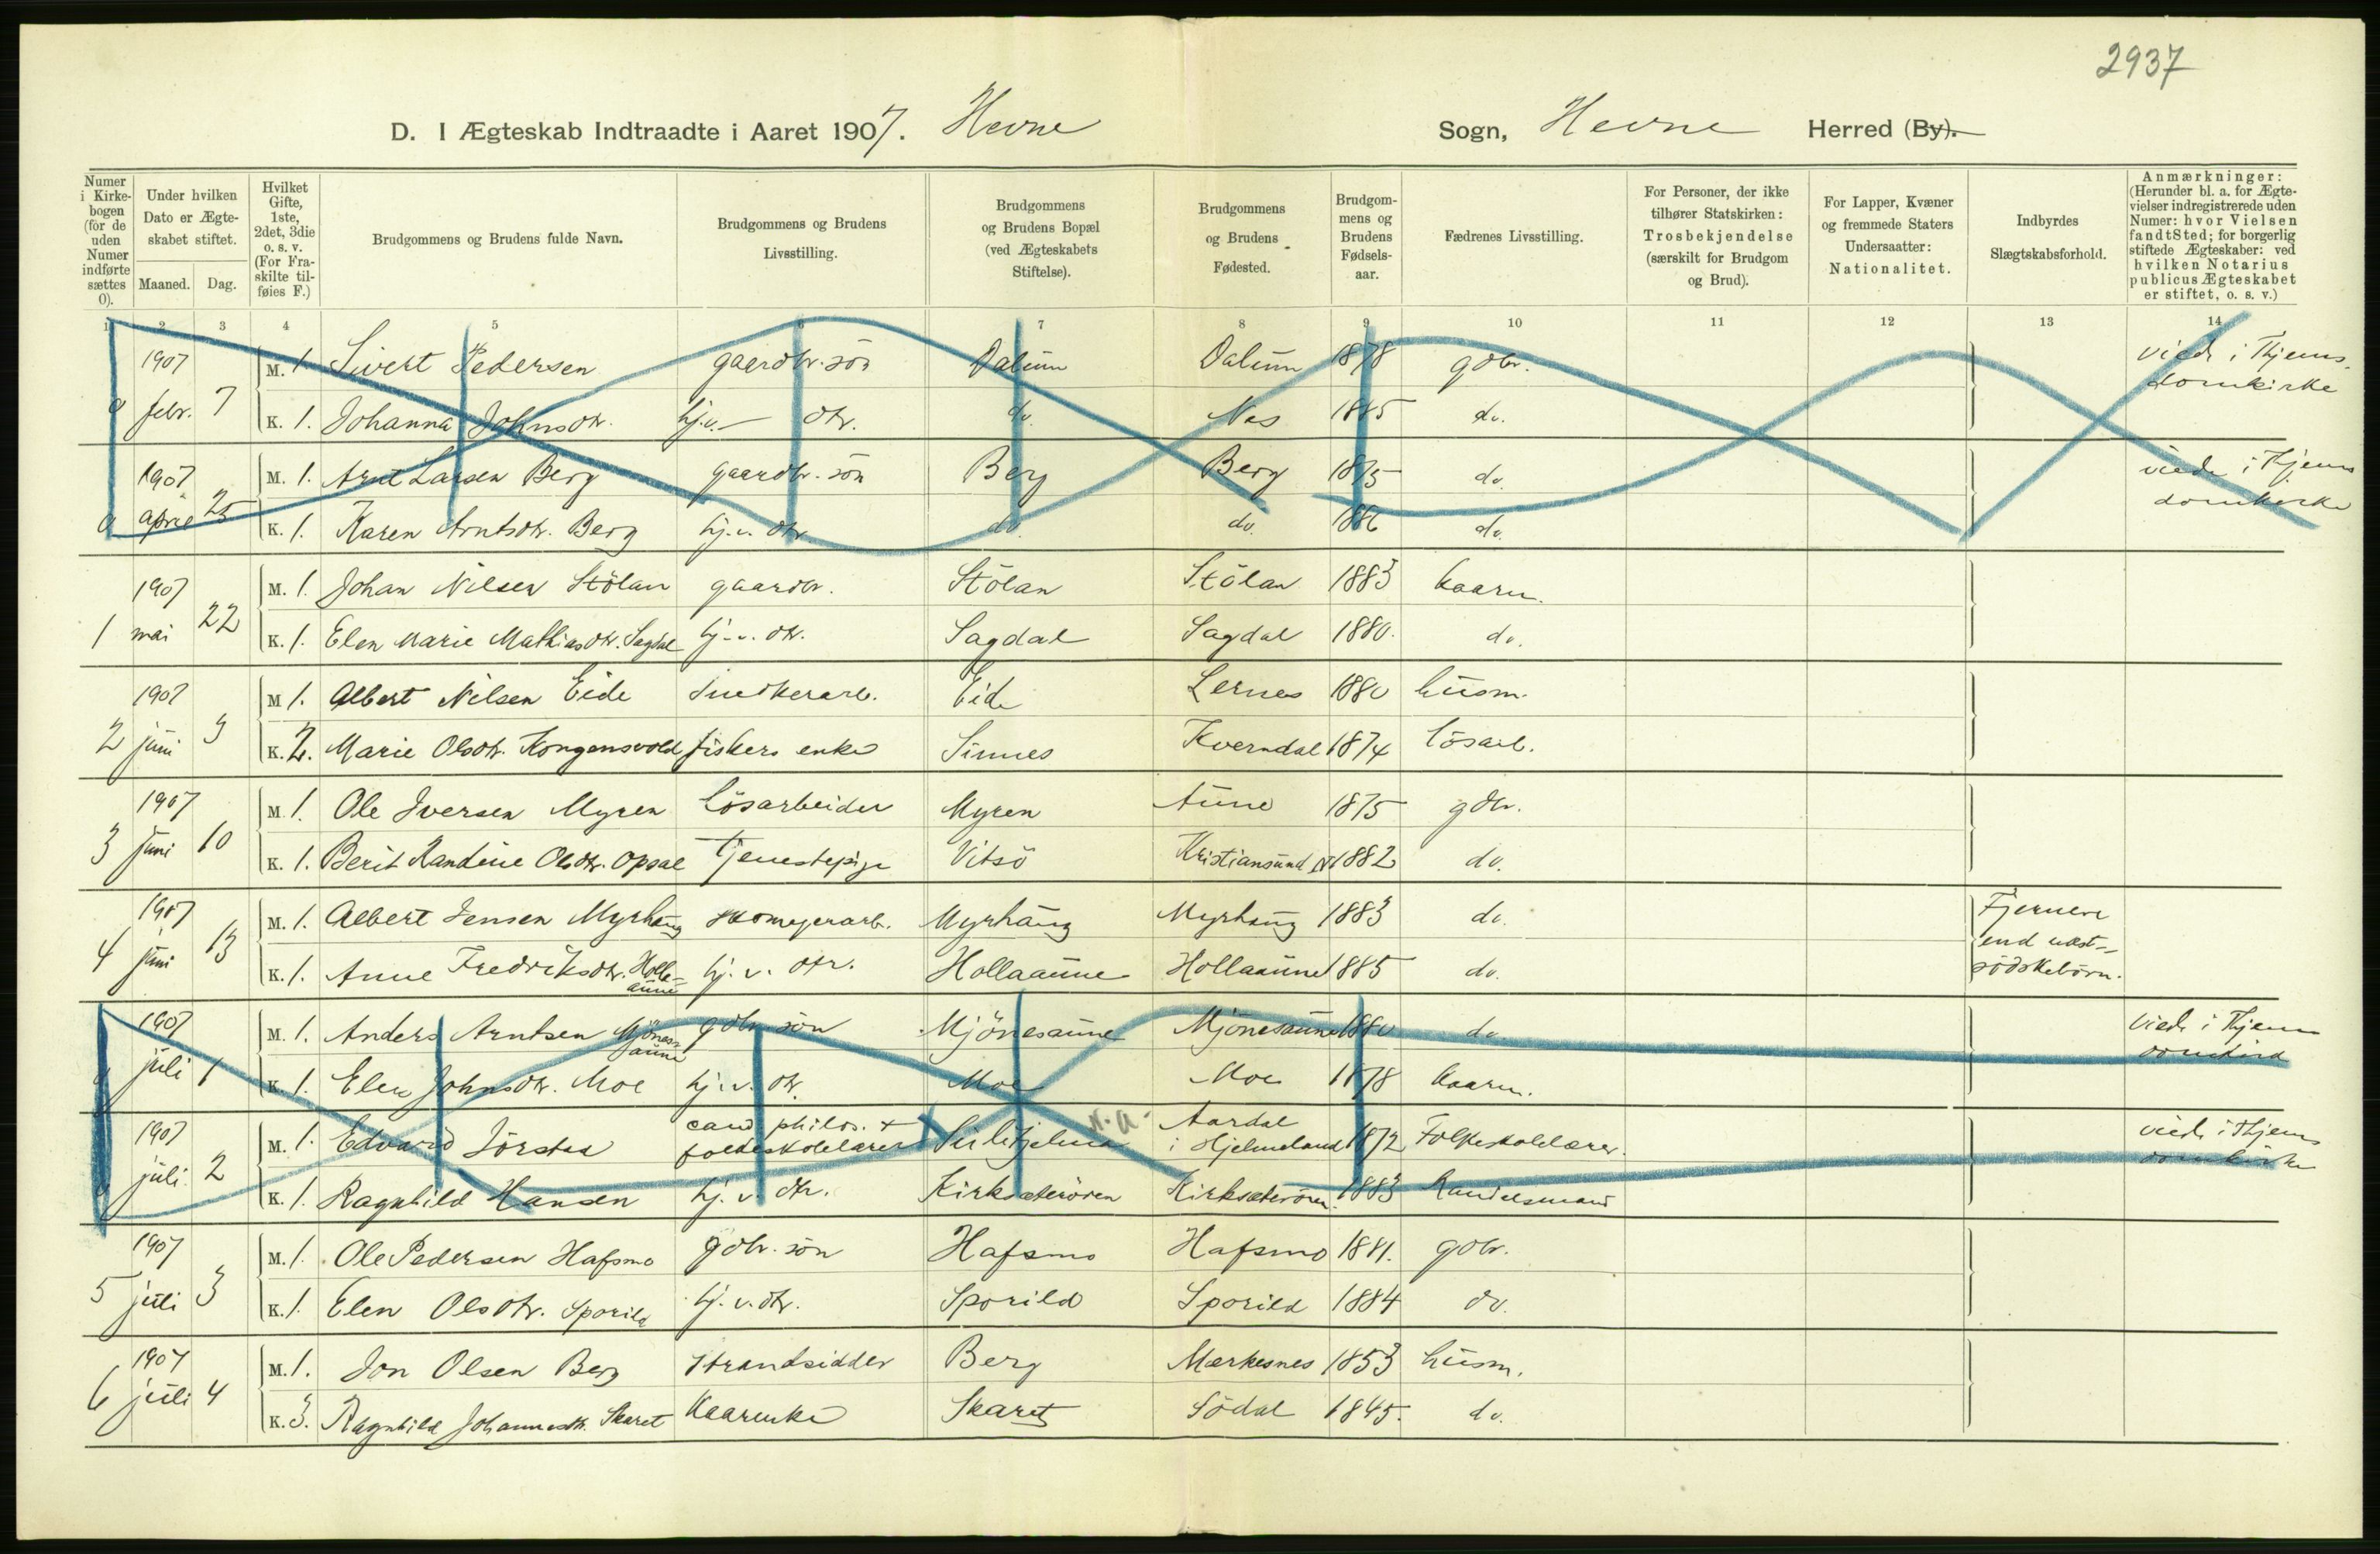 2937
D. I Ægteskab Indtraadte i Aaret 1907. Hevne Sogn, Hevne Herred (By).
Numer i Kirke-bogen (for de uden Numer indførte sættes 0).
Under hvilken Dato er Ægte-skabet stiftet.
Maaned. Dag.
Hvilket Gifte, 1ste, 2det, 3die o. s. v. (For Fra-skilte til-føies F.)
Brudgommens og Brudens fulde Navn.
Brudgommens og Brudens Livsstilling.
Brudgommens og Brudens Bopæl (ved Ægteskabets Stiftelse).
Brudgommens og Brudens Fødested.
Brudgom-mens og Brudens Fødsels-aar.
Fædrenes Livsstilling.
For Personer, der ikke tilhører Statskirken: Trosbekjendelse (særskilt for Brudgom og Brud).
For Lapper, Kvæner og fremmede Staters Undersaatter: Nationalitet.
Indbyrdes Slægtskabsforhold.
Anmærkninger: (Herunder bl. a. for Ægte-vielser indregistrerede uden Numer: hvor Vielsen fandt Sted; for borgerlig stiftede Ægteskaber: ved hvilken Notarius publicus Ægteskabet er stiftet, o. s. v.)
1 2 3 4 5 6 7 8 9 10 11 12 13 14
1907 M. 1. Sivert Pedersen gaardbr. sön Dalum Dalum 1878 gdbr. viede i Thjems
0 febr. 7 K. 1. Johanna Johnsdtr. hj.v. dtr. do. Nes 1885 do. domkirke
1907 M. 1. Arnt Larsen Berg gaardbr. sön Berg Berg 1875 do. viede i Thjems
0 april 25 K. 1. Karen Arntsdtr. Berg hj.v. dtr. do. do. 1886 do. domkirke
1907 M. 1. Johan Nilsen Stölan gaardbr. Stölan Stölan 1883 kaarm.
1 mai 22 K. 1. Elen Marie Mathiasdtr. Sagdal hj.v. dtr. Sagdal Sagdal 1880. do.
1907 M 1. Albert Nilsen Eide snedkerarb. Eide Lernes 1880 husm.
2 juni 3 K. 2. Marie Olsdtr. Kongensvold fiskers enke Sinnes Kverndal 1874 lösarb.
1907 M. 1. Ole Iversen Myren lösarbeider Myren Aune 1875 gdbr.
3 juni 10 K. 1. Berit Randine Olsdtr. Opsal tjenestepige Vitsö Kristiansund N 1882 do.
1907 M. 1. Albert Jensen Myrhaug skomagerarb. Myrhaug Myrhaug 1883 do. Fjernere
4 juni 13 K. 1. Anne Fredriksdtr. Hollaaune hj. v. dtr. Hollaaune Hollaaune 1885 do. end næst-södskebörn.
1907 M. 1. Anders Arntsen Mjönesaune gdbr. sön Mjönesaune Mjönesaune 1880 do. Viede i Thjems
0 juli 1 K. 1. Elen Johnsdtr. Moe hj. v. dtr. Moe Moe 1878 kaarm. domkirke
1907 M. 1. Edvard Jörstad cand philos. + folkeskolelærer Sulitjelma N.A. Aardal i Hjelmeland 1872 Folkeskolelærer. viede i Thjems
0 juli 2 K. 1. Ragnhild Hansen hj. v. dtr. Kirksæterören Kirksæterören 1883 Handelsmand domkirke
1907 M. 1. Ole Pedersen Hafsmo gdbr. sön Hafsmo Hafsmo 1881. gdbr.
5 juli 3 K. 1. Elen Olsdtr. Sporild hj. v. dtr. Sporild Sporild 1884 do.
1907 M. 1. Jon Olsen Berg strandsidder Berg Mærkesnes 1853 husm.
6 juli 4 K. 3. Ragnhild Johannesdtr. Skaret Kaarenke Skaret Södal 1845. do.